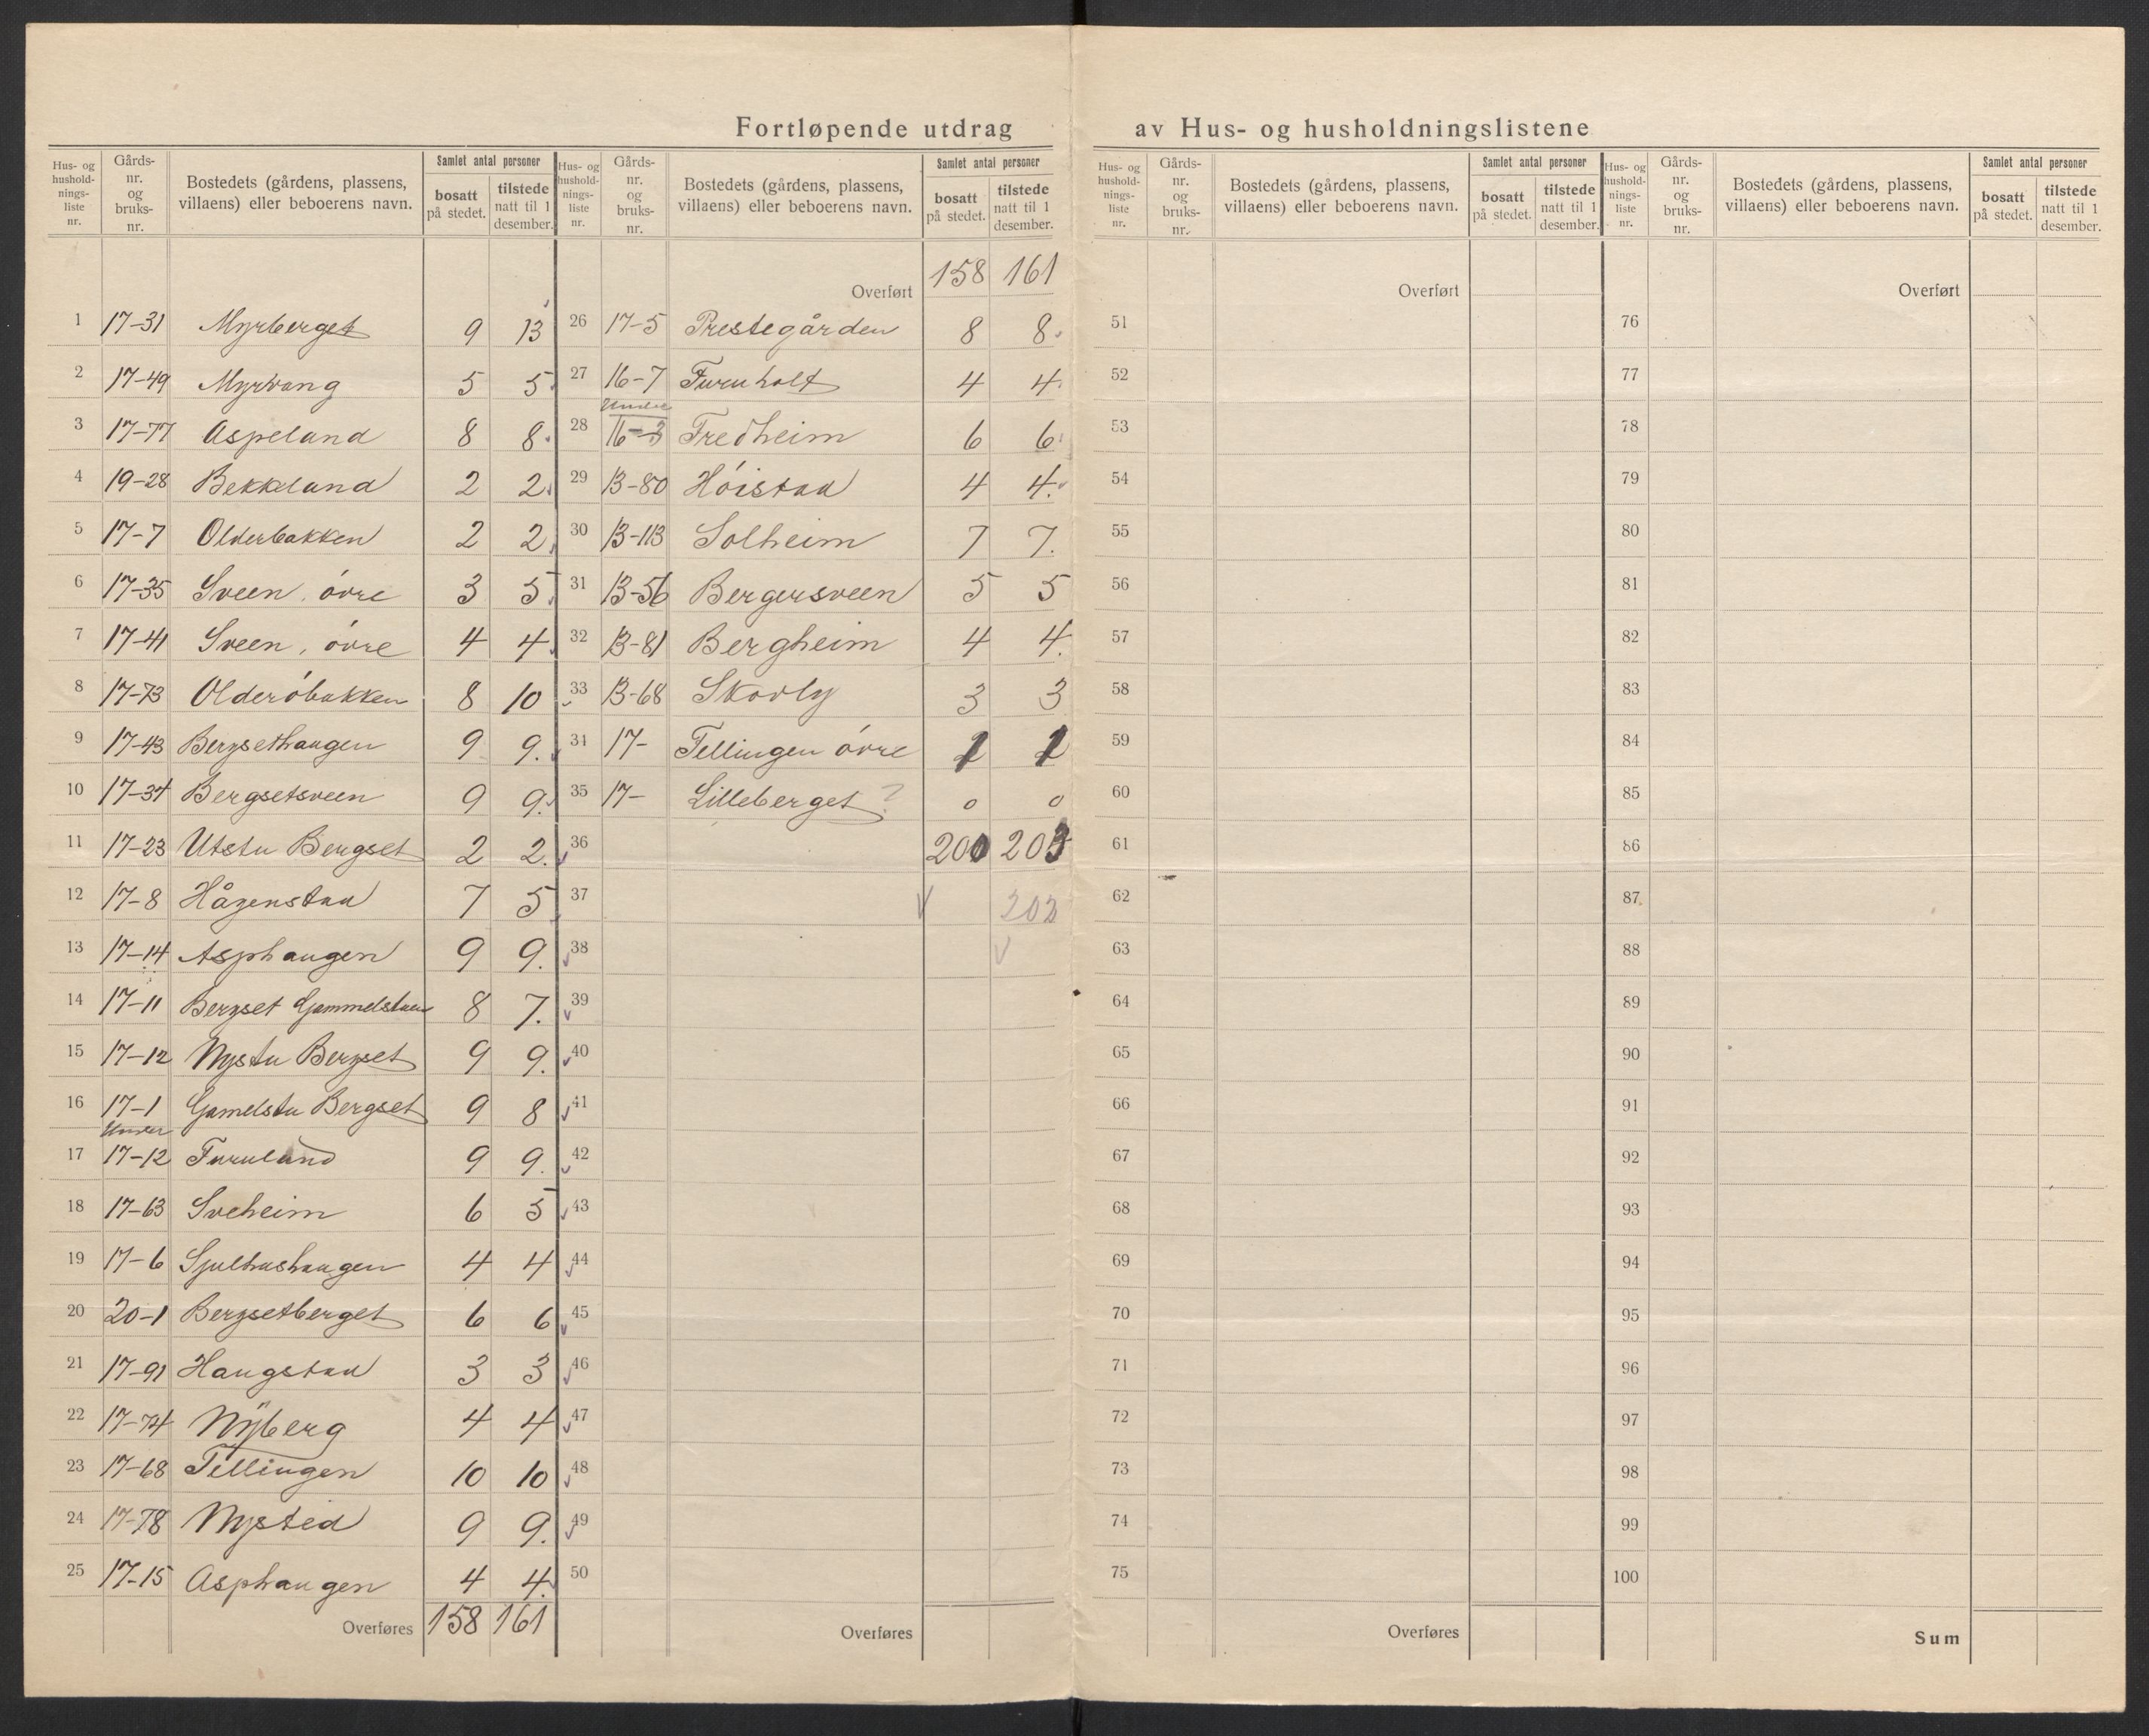 Fortløpende utdrag av Hus- og husholdningslistene
Hus- og husholdnings-liste nr. | Gårds-nr. og bruks-nr. | Bostedets (gårdens, plassens, villaens) eller beboerens navn. | Samlet antal personer | bosatt på stedet. | tilstede natt til 1 desember.
1 17-31 Myrberget 9 13
2 17-49 Myrvang 5 5
3 17-77 Aspeland 8 8
4 19-28 Bekkeland 2 2
5 17-7 Olderbakken 2 2
6 17-35 Sveen, óvre 3 5
7 17-41 Sveen, óvre 4 4
8 17-73 Olderóbakken 8 10
9 17-43 Bergsethaugen 9 9.
10 17-34 Bergsetsveen 9 9.
11 17-23 Utstu Bergset 2 2.
12 17-8 Hågenstad 7 5
13 17-14 Asphaugen 9 9.
14 17-11 Bergset Gammelstuen 8 7.
15 17-12 Nystu Bergset 9 9.
16 17-1 Gamelstu Bergset 9 8
Under
17 17-12 Furuland 9 9.
18 17-63 Sveheim 6 5
19 17-6 Sjulhushaugen 4 4
20 20-1 Bergsetberget 6 6
21 17-91 Haugstad 3 3
22 17-74 Nyberg 4 4
23 17-68 Tellingen 10 10
24 17-78 Nysted 9 9.
25 17-15 Asphaugen 4 4.
Overføres 158 161
Hus- og husholdnings-liste nr. | Gårds-nr. og bruks-nr. | Bostedets (gårdens, plassens, villaens) eller beboerens navn. | Samlet antal personer | bosatt på stedet. | tilstede natt til 1 desember.
Overført 158 161
26 17-5 Prestegården 8 8.
27 16-7 Furuholt 4 4.
Under
28 16-3 Fredheim 6 6
29 13-80 Hóistad 4 4.
30 13-113 Solheim 7 7.
31 13-56 Bergersveen 5 5
32 13-81 Bergheim 4 4.
33 13-68 Skovly 3 3
34 17- Tellingen óvre 1 1
35 17- Lilleberget ? 0 0
36 200 203
37 202
38
39
40
41
42
43
44
45
46
47
48
49
50
Overføres
Hus- og husholdnings-liste nr. | Gårds-nr. og bruks-nr. | Bostedets (gårdens, plassens, villaens) eller beboerens navn. | Samlet antal personer | bosatt på stedet. | tilstede natt til 1 desember.
Overført
51
52
53
54
55
56
57
58
59
60
61
62
63
64
65
66
67
68
69
70
71
72
73
74
75
Overføres
Hus- og husholdnings-liste nr. | Gårds-nr. og bruks-nr. | Bostedets (gårdens, plassens, villaens) eller beboerens navn. | Samlet antal personer | bosatt på stedet. | tilstede natt til 1 desember.
Overført
76
77
78
79
80
81
82
83
84
85
86
87
88
89
90
91
92
93
94
95
96
97
98
99
100
Sum